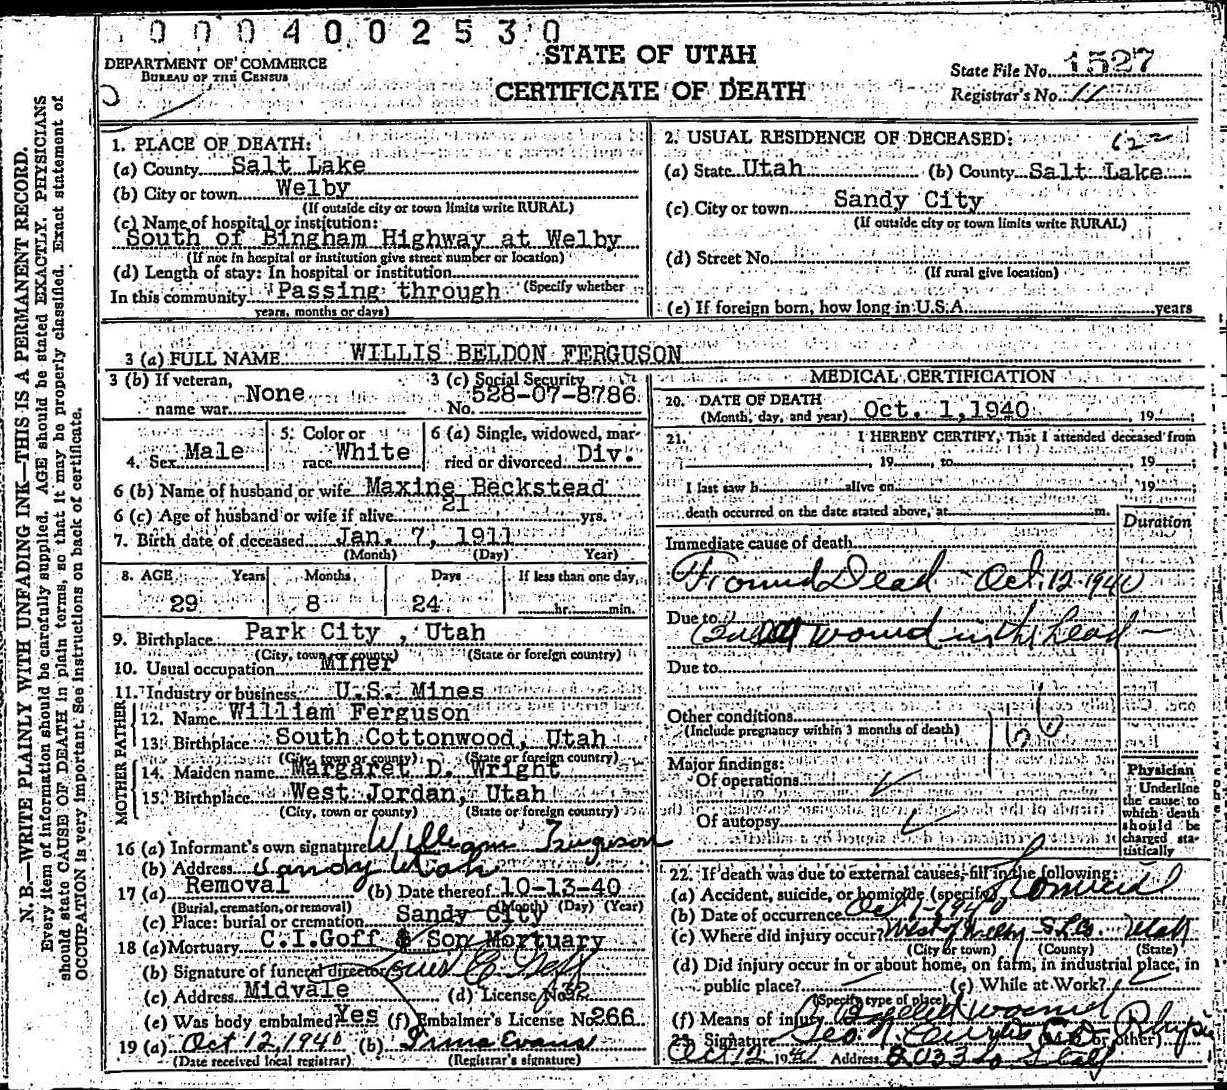 0004002530
STATE OF UTAH
CERTIFICATE OF DEATH
DEPARTMENT OF COMMERCE
BUREAU OF THE CENSUS
State File No. 1527
Registrar's No. 11
N. B.—WRITE PLAINLY WITH UNFADING INK—THIS IS A PERMANENT RECORD.
Every item of information should be carefully supplied. AGE should be stated EXACTLY. PHYSICIANS
should state CAUSE OF DEATH in plain terms, so that it may be properly classified. Exact statement of
OCCUPATION is very important. See instructions on back of certificate.
1. PLACE OF DEATH:
(a) County Salt Lake
(b) City or town Welby
(If outside city or town limits write RURAL)
(c) Name of hospital or institution:
South of Bingham Highway at Welby
(If not in hospital or institution give street number or location)
(d) Length of stay: In hospital or institution
In this community Passing through (Specify whether
years, months or days)
2. USUAL RESIDENCE OF DECEASED:
(a) State Utah (b) County Salt Lake
(c) City or town Sandy City
(If outside city or town limits write RURAL)
(d) Street No.
(If rural give location)
(e) If foreign born, how long in U.S.A. years
3 (a) FULL NAME WILLIS BELDON FERGUSON
3 (b) If veteran, name war None
3 (c) Social Security No. 528-07-8786
4. Sex Male
5. Color or race White
6 (a) Single, widowed, married or divorced Div.
6 (b) Name of husband or wife Maxine Beckstead
6 (c) Age of husband or wife if alive 21 yrs.
7. Birth date of deceased Jan. 7, 1911
(Month) (Day) Year)
8. AGE Years Months Days If less than one day
29 8 24 hr. min.
9. Birthplace Park City, Utah
(City, town or county) (State or foreign country)
10. Usual occupation Miner
11. Industry or business U.S. Mines
FATHER
12. Name William Ferguson
13. Birthplace South Cottonwood, Utah
(City, town or county) (State or foreign country)
MOTHER
14. Maiden name Margaret D. Wright
15. Birthplace West Jordan, Utah
(City, town or county) (State or foreign country)
16 (a) Informant's own signature William Ferguson
(b) Address Sandy Utah
17 (a) Removal (b) Date thereof 10-13-40
(Burial, cremation, or removal) (Month) (Day) (Year)
(c) Place: burial or cremation Sandy City
18 (a) Mortuary C.I.Goff & Son Mortuary
(b) Signature of funeral director Goff
(c) Address Midvale (d) License No. 32
(e) Was body embalmed? Yes (f) Embalmer's License No. 266
19 (a) Oct 12, 1940 (b) Irma Evans
(Date received local registrar) (Registrar's signature)
MEDICAL CERTIFICATION
20. DATE OF DEATH
(Month, day, and year) Oct. 1, 1940, 19 ;
21. I HEREBY CERTIFY, That I attended deceased from
, 19 , to , 19 ;
I last saw h alive on , 19 ;
death occurred on the date stated above, at m.
Duration
Immediate cause of death
Found Dead - Oct. 12-1940
Due to Bullet wound in the head -
Due to
Other conditions
(Include pregnancy within 3 months of death)
Major findings:
Of operations
Of autopsy
Physician
Underline
the cause to
which death
should be
charged sta-
tistically
22. If death was due to external causes, fill in the following:
(a) Accident, suicide, or homicide (specify) Homicide
(b) Date of occurrence Oct 1-1940
(c) Where did injury occur? West of Welby S.L.Co. Utah
(City or town) (County) (State)
(d) Did injury occur in or about home, on farm, in industrial place, in
public place? (e) While at Work?
(Specify type of place)
(f) Means of injury Bullet wound
23. Signature Geo. N. (M.D. or other)
Oct 12 19 Address